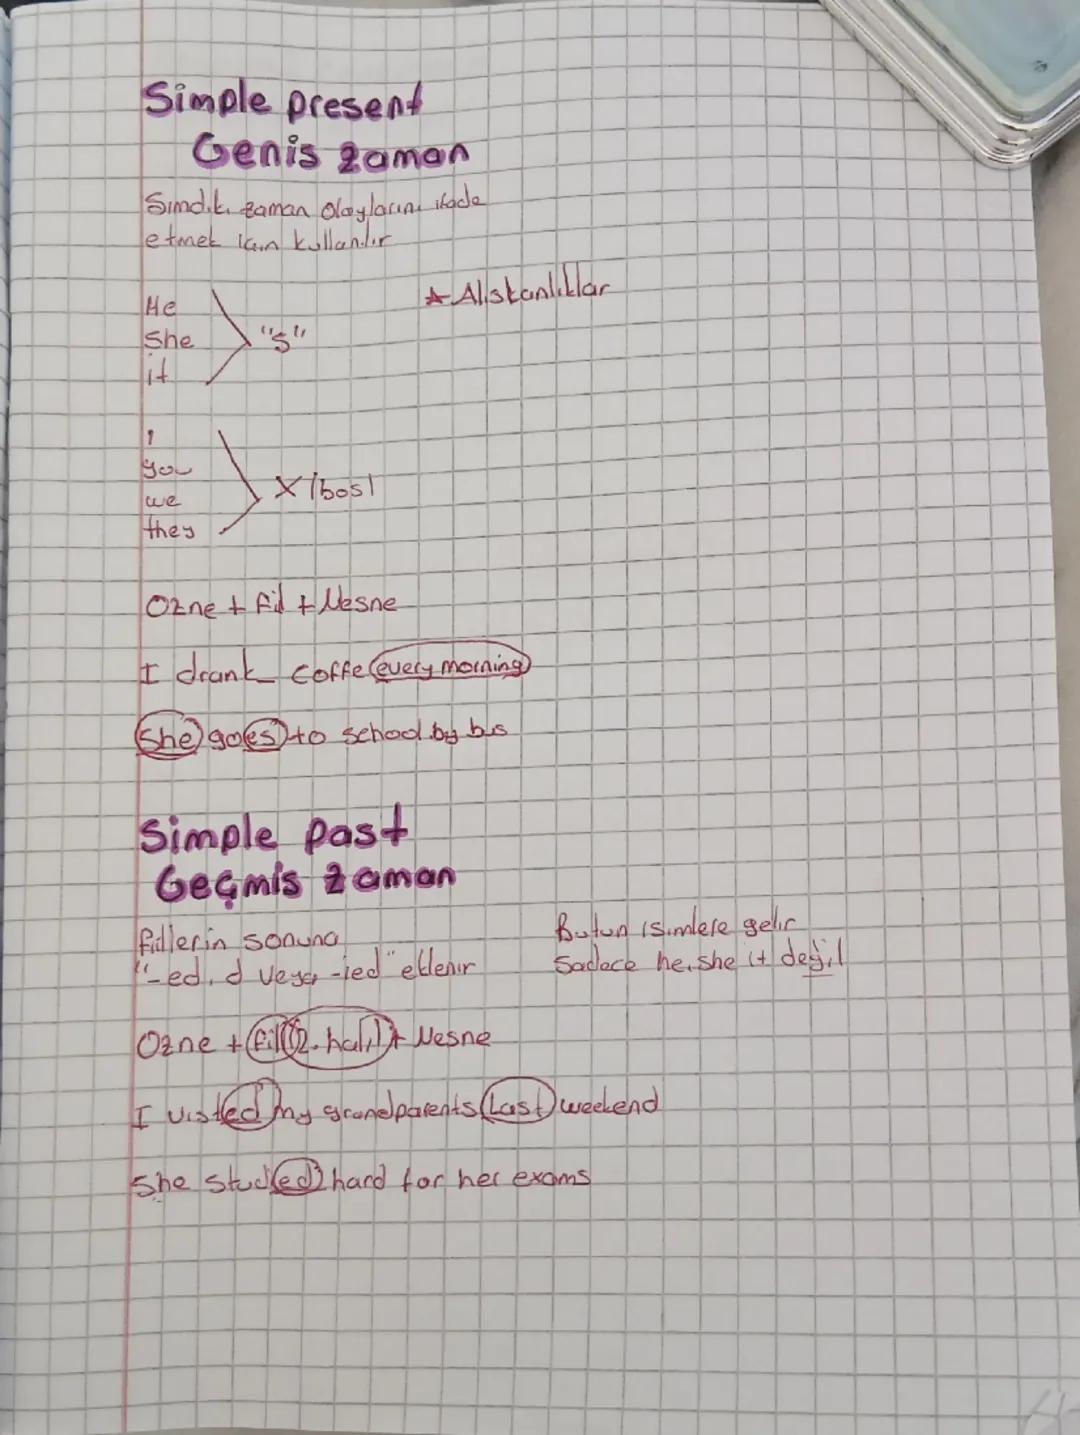 Simple present
Genis zaman
Simdiki zaman olaylarını ifade
etmek icin kullanılır
★ Alıskanlıklar
He
She
it
"s"
I
you
we
they
X /bos/
Ozne + fiil + Nesne
I drank coffe every morning
She goes to school by bus
Simple past
Geçmis zaman
fiillerin sonuna
"-ed, d veya -ied" eklenir
Butun isimlere gelir
Sadece he, she it değil
Ozne + fiil (2. hali) + Nesne
I visted my grandparents last weekend
She studied hard for her exams